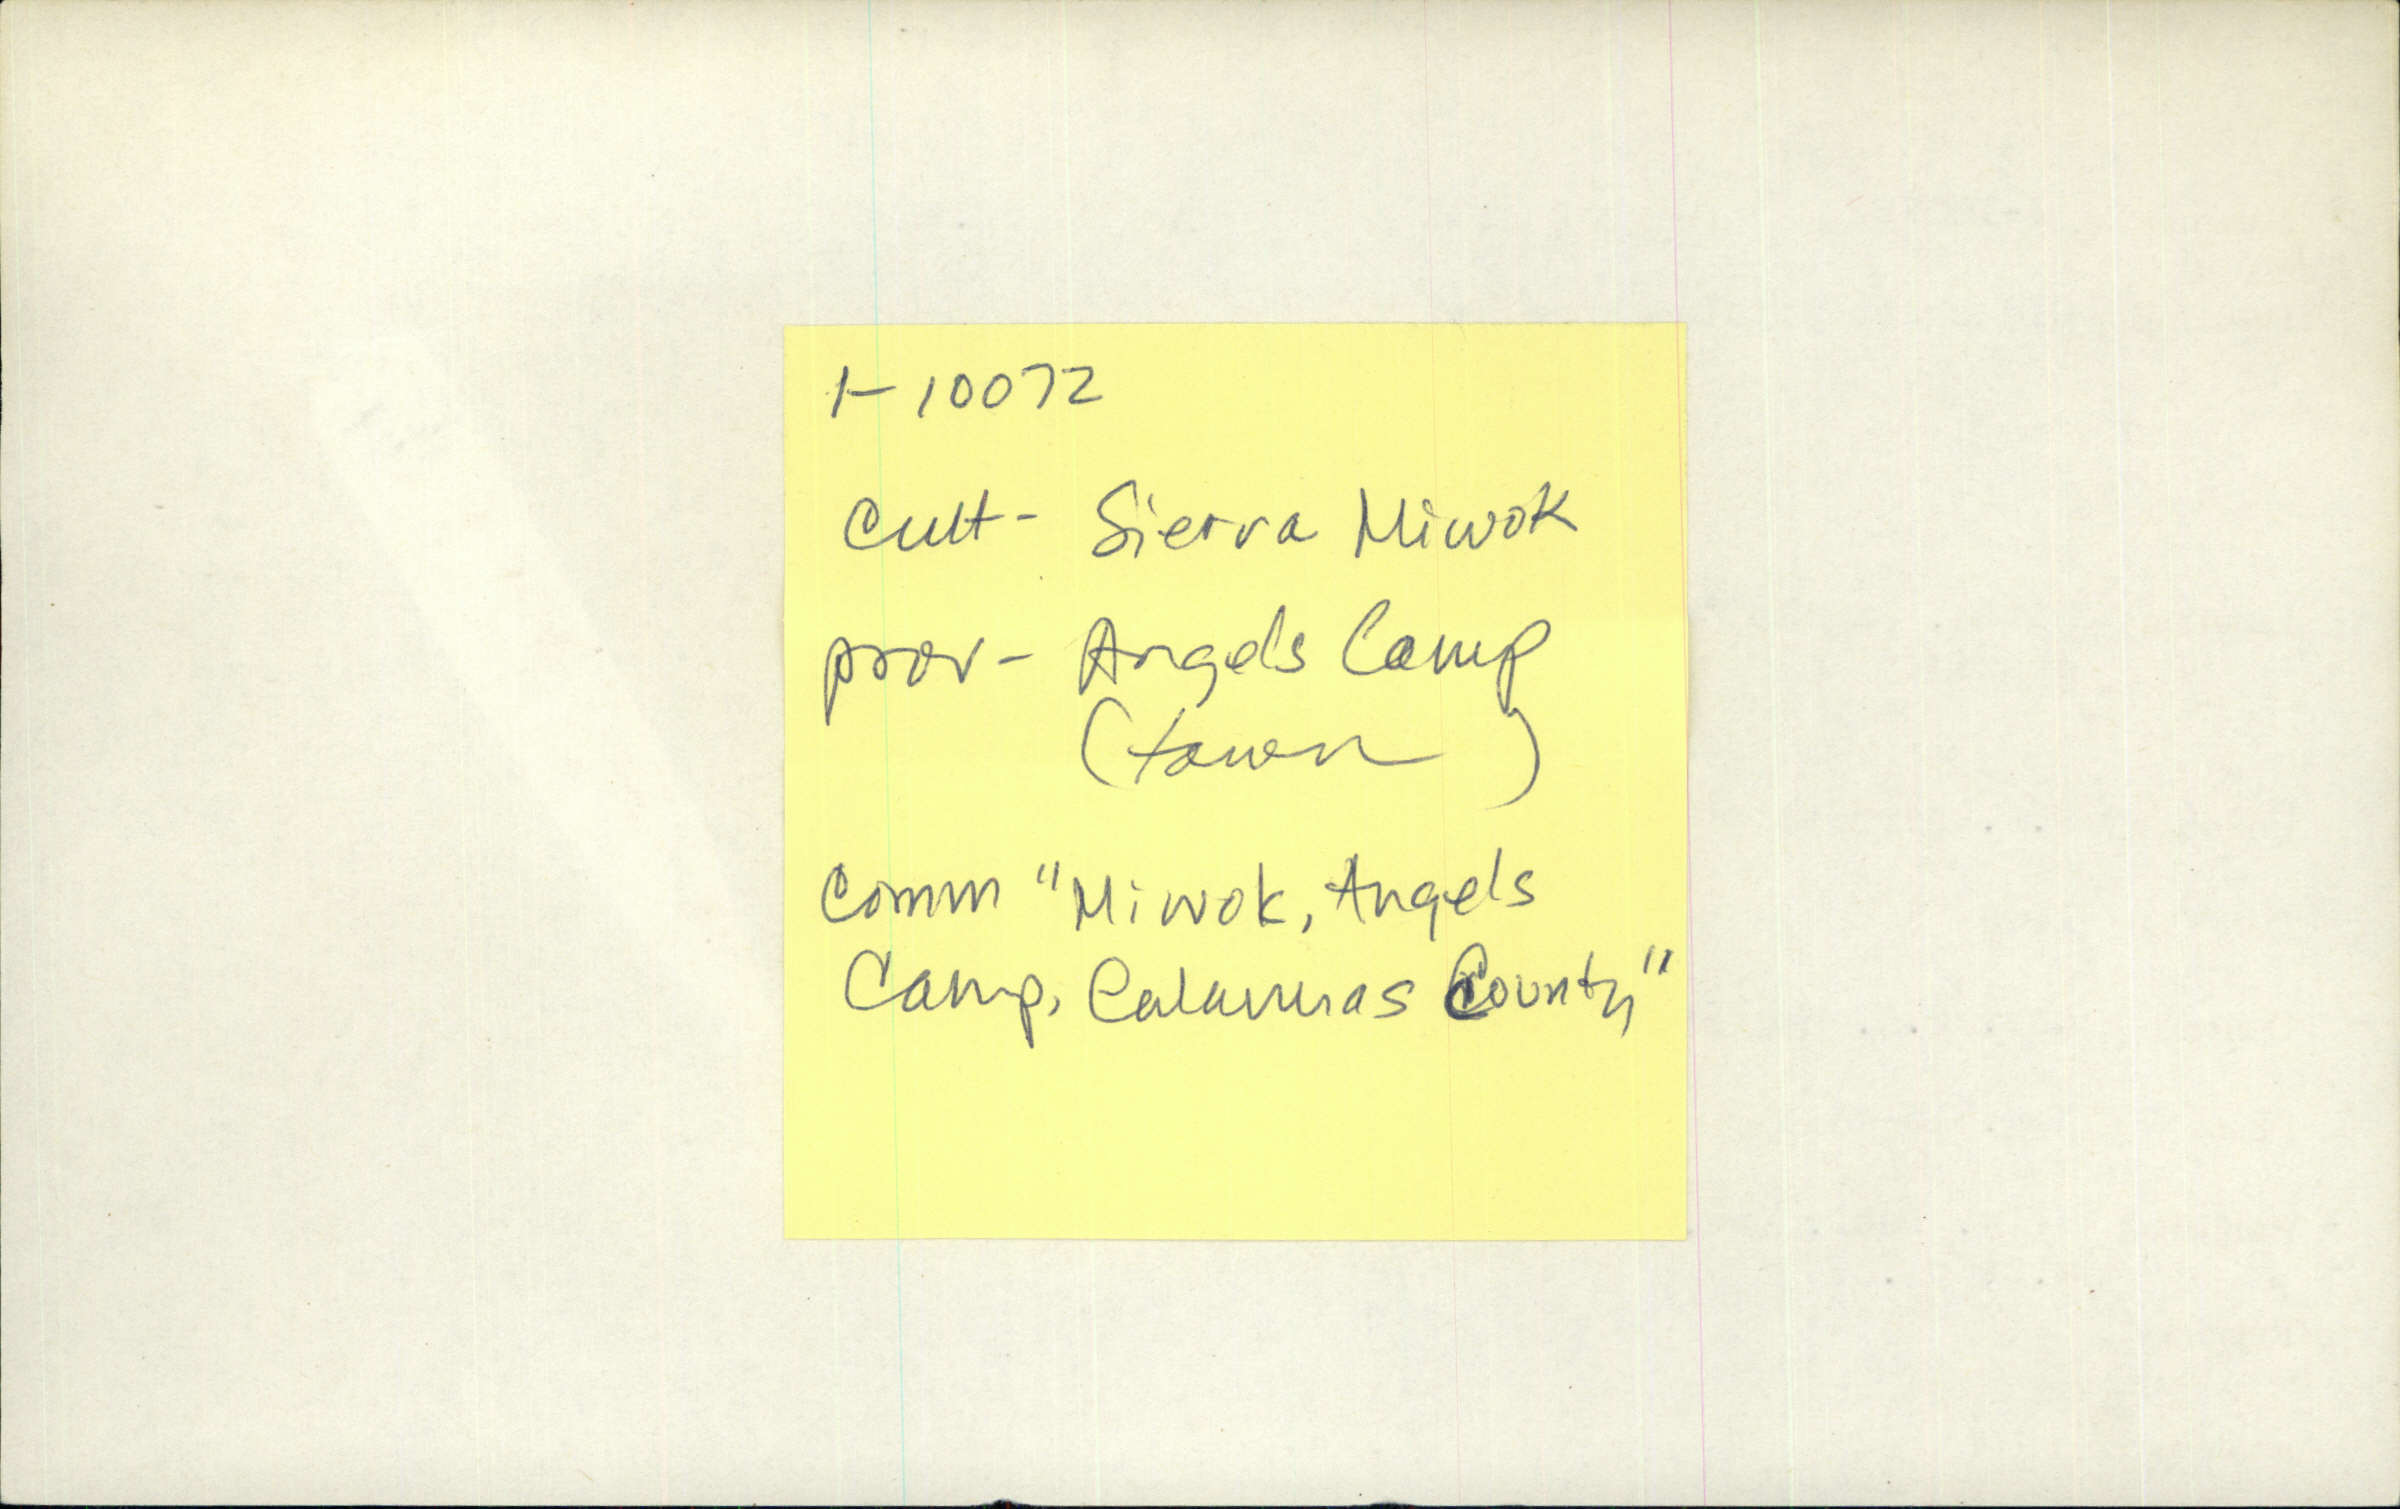 1-10072
Cult- Sierra Miwok
prov- Angels Camp
(town)
Comm "Miwok, Angels
Camp, Calaveras County"